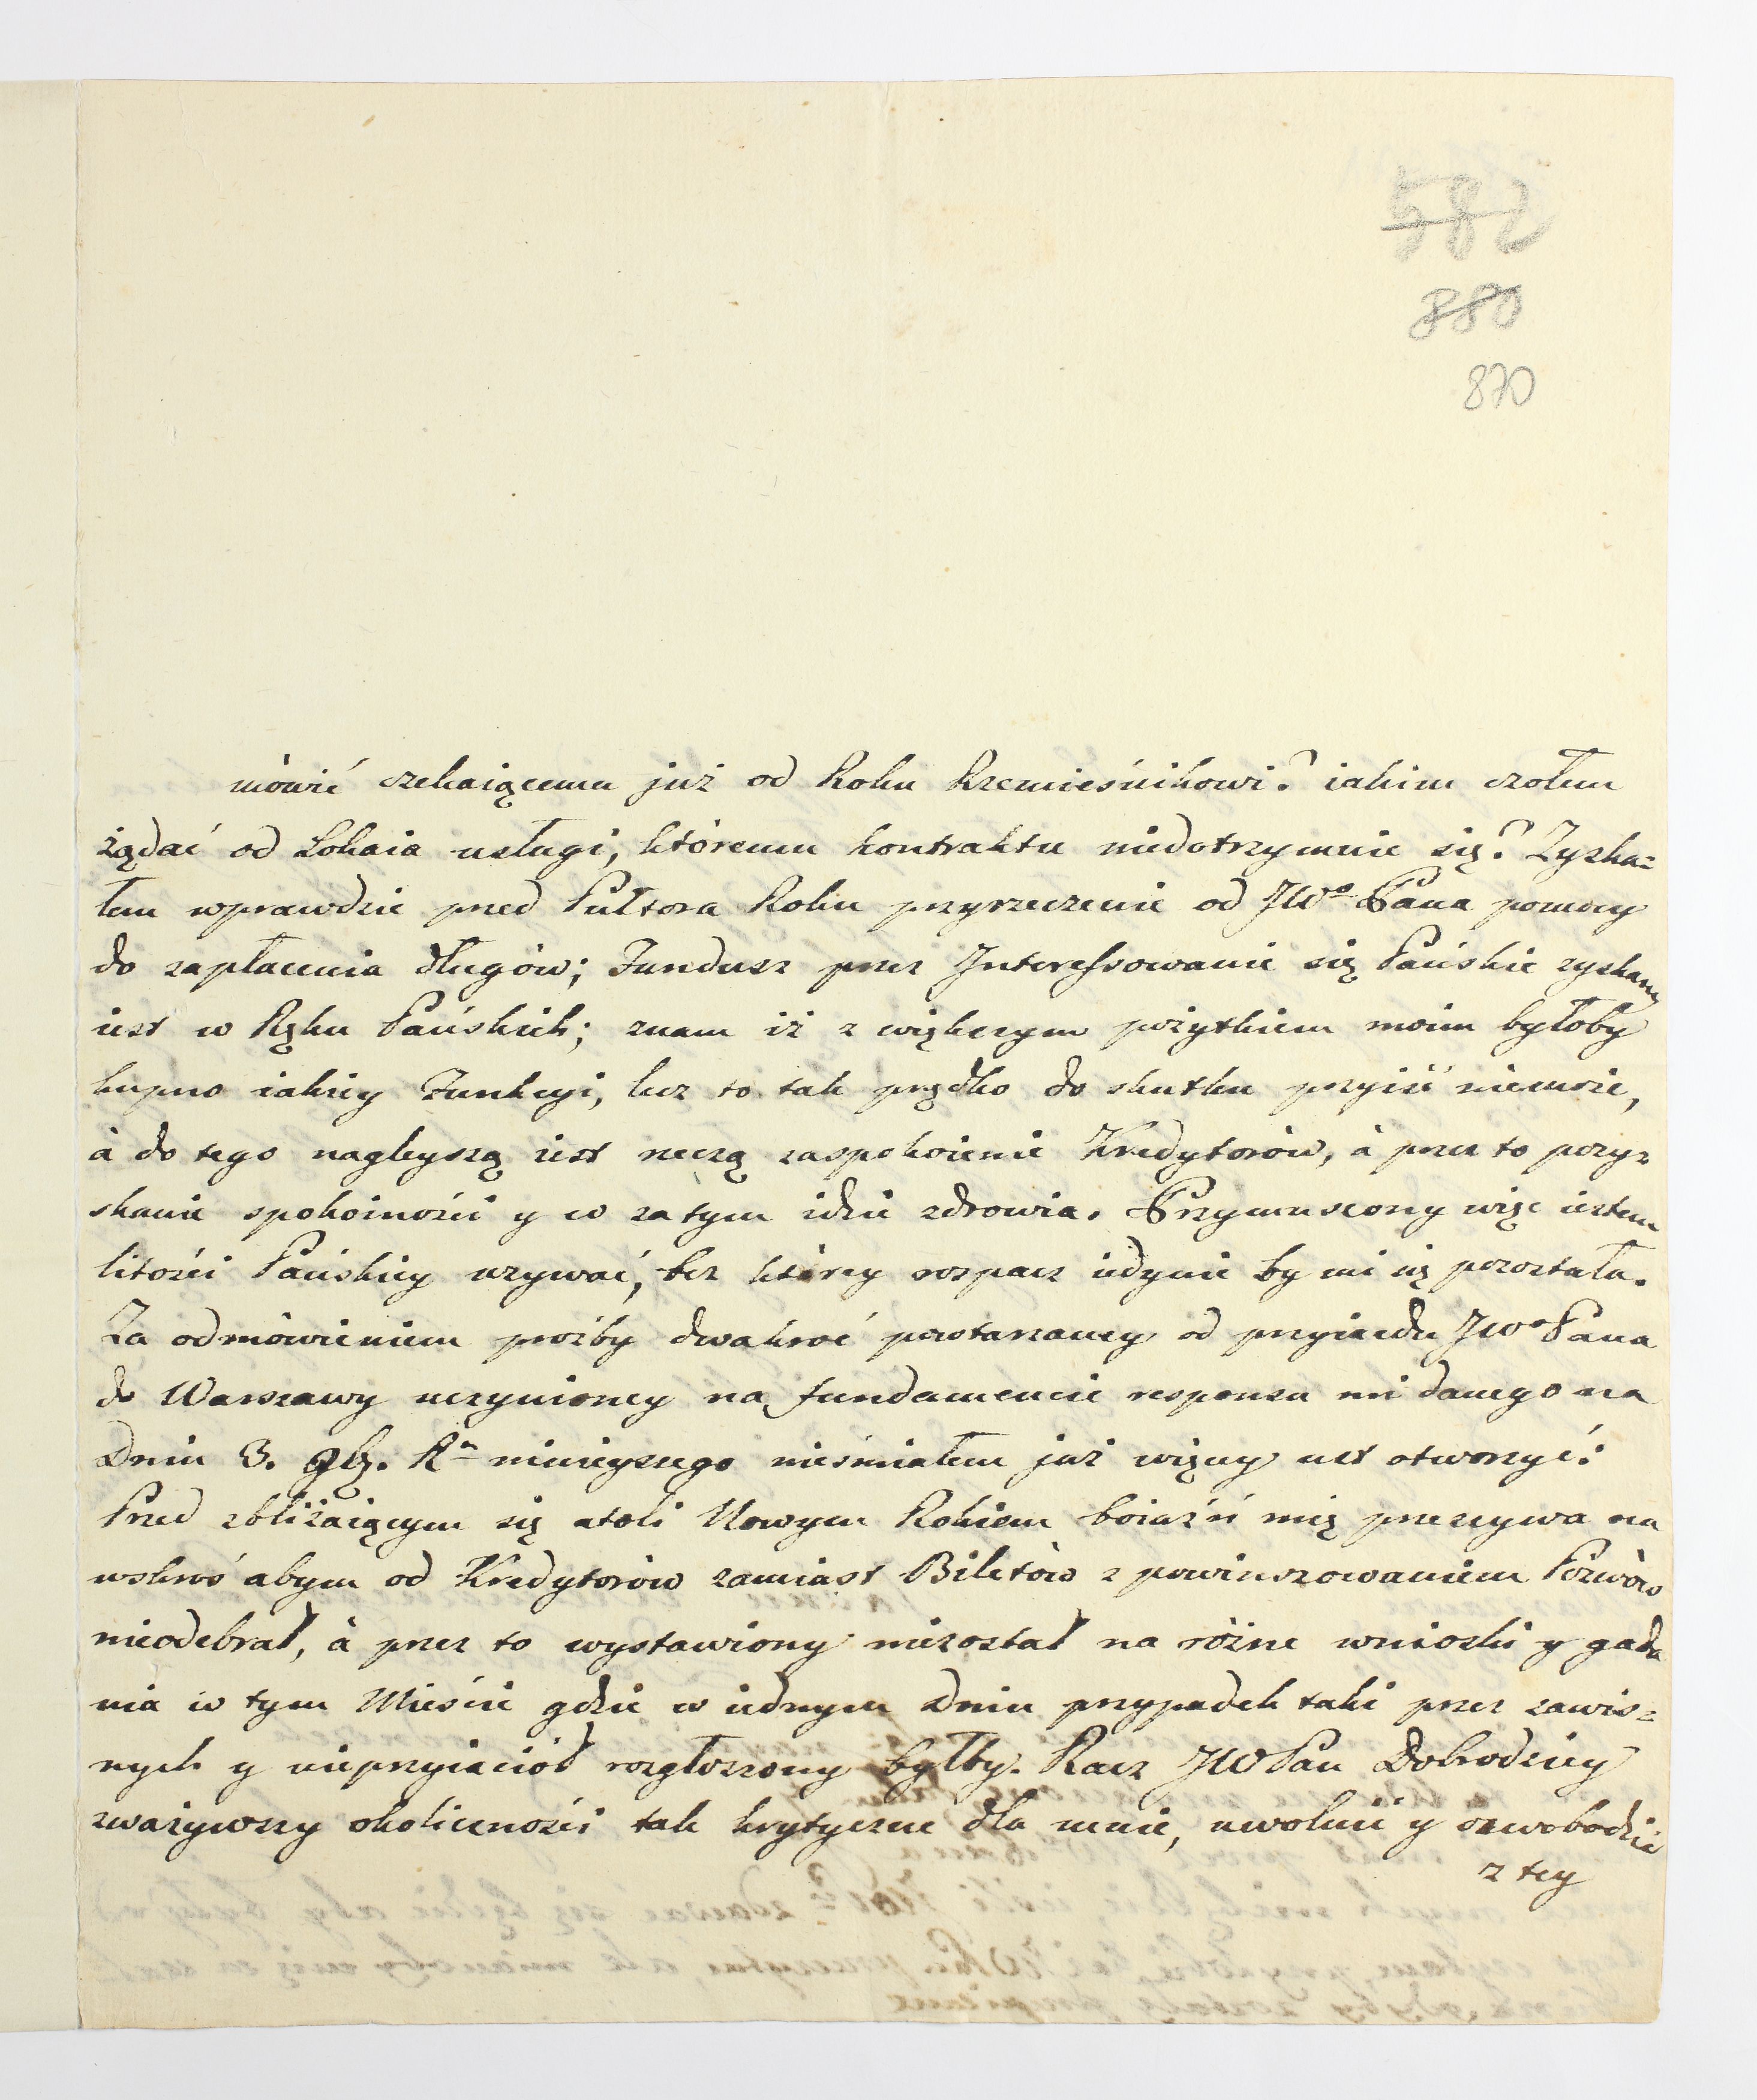 582
880
870
mówić czekaiącemu już od Roku Rzemieśnikowi? iakim czołem
żądać od Lokaia usługi, któremu kontraktu niedotrzymuie się? Zyska=
łem wprawdzie przed Pułtora Roku przyrzeczenie od JWo Pana pomocy
do zapłacenia długów; Fundusz przez Interessowanie się Pańskie zyskany
iest w Ręku Pańskich; znam iż z większym pożytkiem moim byłoby
kupno iakiey Funkcyi, lecz to tak prędko do skutku przyiść niemoże,
à do tego nagleyszą iest rzeczą zaspokoienie Kredytorów, à przez to pozy=
skanie spokoiności y w zatym idzie zdrowia. Przymuszony więc iestem
litości Pańskiey wzywać, bez którey rospacz iedynie by mi się pozostała.
Za odmówieniem proźby dwakroć powtarzaney od przyiazdu JWo Pana
do Warszawy uczynioney na fundamencie responsu mi danego na
Dniu 3. 9b. Ro ninieyszego nieśmiałem już więcey ust otworzyć:
Przed zbliżaiącym się atoli Nowym Rokiem boiaźń mię przeszywa na
wskroś abym od Kredytorów zamiast Biletów z powinszowaniem Pozwów
nieodebrał, à przez to wystawiony niezostał na różne wnioski y gada
nia w tym Mieście gdzie w iednym Dniu przypadek taki przez zawis=
nych y nieprzyiaciół rozgłoszony byłby. Racz JW Pan Dobrodziey
zważywszy okoliczności tak krytyczne dla mnie, uwolnić y oswobodzić
z tey